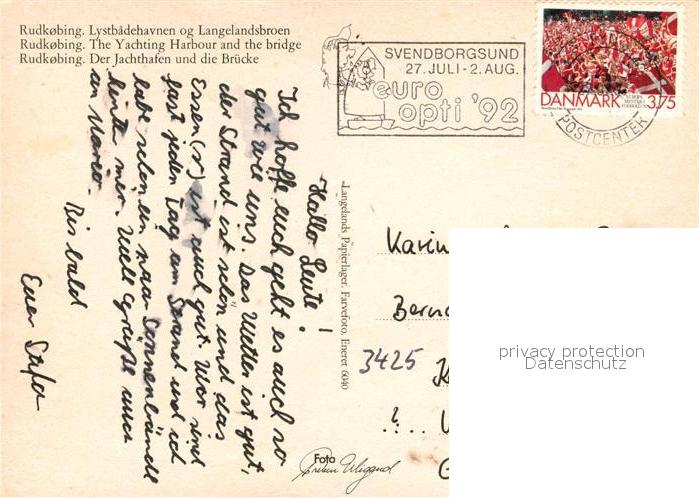 Rudkøbing. Lystbådehavnen og Langelandsbroen
Rudkøbing. The Yachting Harbour and the bridge
Rudkøbing. Der Jachthafen und die Brücke
SVENDBORGSUND
27. JULI - 2. AUG.
euro
opti '92
DANMARK 3.75
POSTCENTER
Hallo Leute!
Ich hoffe euch geht es auch so
gut wie uns. Das Wetter ist gut,
der Strand ist schön und das
Essen(s) ist auch gut. Wir sind
fast jeden Tag am Strand und ich
habe schon ein paar Sonnenbrände
hinter mir. Viele Grüße auch
an Marco.
Bis bald
Euer Stefan
Langelands Papierlager. Farvefoto. Eneret 6040
Foto
Karin
3425
privacy protection
Datenschutz